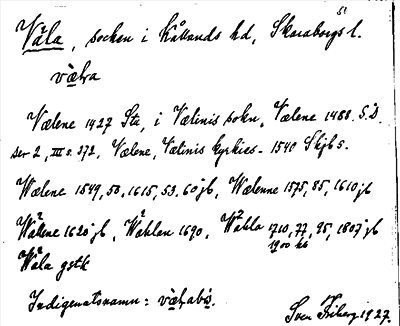 Våla, socken i Kållands hd, Skaraborgs l.
Vælene 1427 Sta, i Vælinis sokn, Vælene 1488 S.D.
ser 2, III s. 272, Vælene, Vælinis kyrkies- 1540 Skjb s.
Wælene 1549, 50, 1615, 53, 60 jb, Wælenne 1575, 85, 1610 jb
Wålene 1620 jb, Wåhlan 1690, Wåhla 1710, 77, 95, 1807 jb
1900 kb
Wåla gstk
Indigenatsnamn:
Sven Friberg 1927.